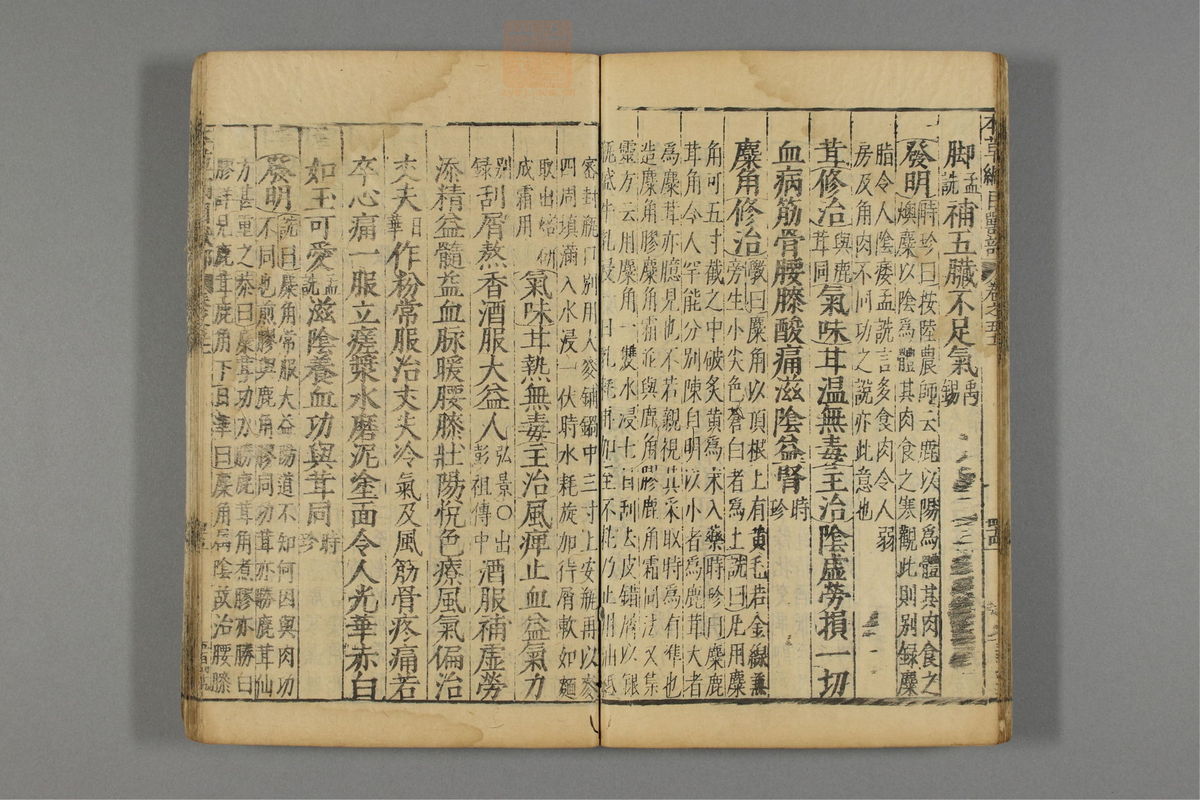 本草綱目獸部 卷之五十一
脚孟詵補五臟不足氣禹錫
發明時珍曰按陸農師云鹿以陽爲體其肉食之
燠麋以陰爲體其肉食之寒觀此則别録麋
脂令人陰痿孟詵言多食肉令人弱
房及角肉不同功之說亦此意也
茸修治與鹿茸同氣味甘温無毒主治陰虛勞損一切
血病筋骨腰膝酸痛滋陰益腎時珍
麋角修治斆曰麋角以頂根上有黄毛若金線兼
旁生小尖色蒼白者爲上詵曰凡用麋
角可五寸截之中破炙黄爲末入藥時珍曰麋鹿
茸角今人罕能分别陳自明以小者爲鹿茸大者
爲麋茸亦臆見也不若親視其采取時爲有準也
造麋角膠麋角霜並與鹿角膠鹿角霜同法又集
靈方云用麋角一雙水浸七日刮去皮錯屑以銀
瓶盛牛乳浸一日乳耗再加至不耗乃止用油紙
密封瓶口别用大麥鋪鍋中三寸上安瓶再以麥
四周填滿入水浸一伏時水耗旋加待屑軟如麵
取出焙研成霜用氣味甘熱無毒主治風痺止血益氣力
别録刮屑熬香酒服大益人弘景〇出彭祖傳中酒服補虛勞
添精益髓益血脉暖腰膝壯陽悅色療風氣偏治
丈夫日華作粉常服治丈夫冷氣及風筋骨疼痛若
卒心痛一服立瘥漿水磨泥塗面令人光華赤白
如玉可愛孟詵滋陰養血功與茸同時珍
發明詵曰麋角常服大益陽道不知何因與肉功
不同也煎膠與鹿角膠同功茸亦勝鹿茸仙
方甚重之恭曰麋茸功力勝鹿茸角煮膠亦勝白
膠詳見鹿茸鹿角下日華曰麋角屬陰故治腰膝